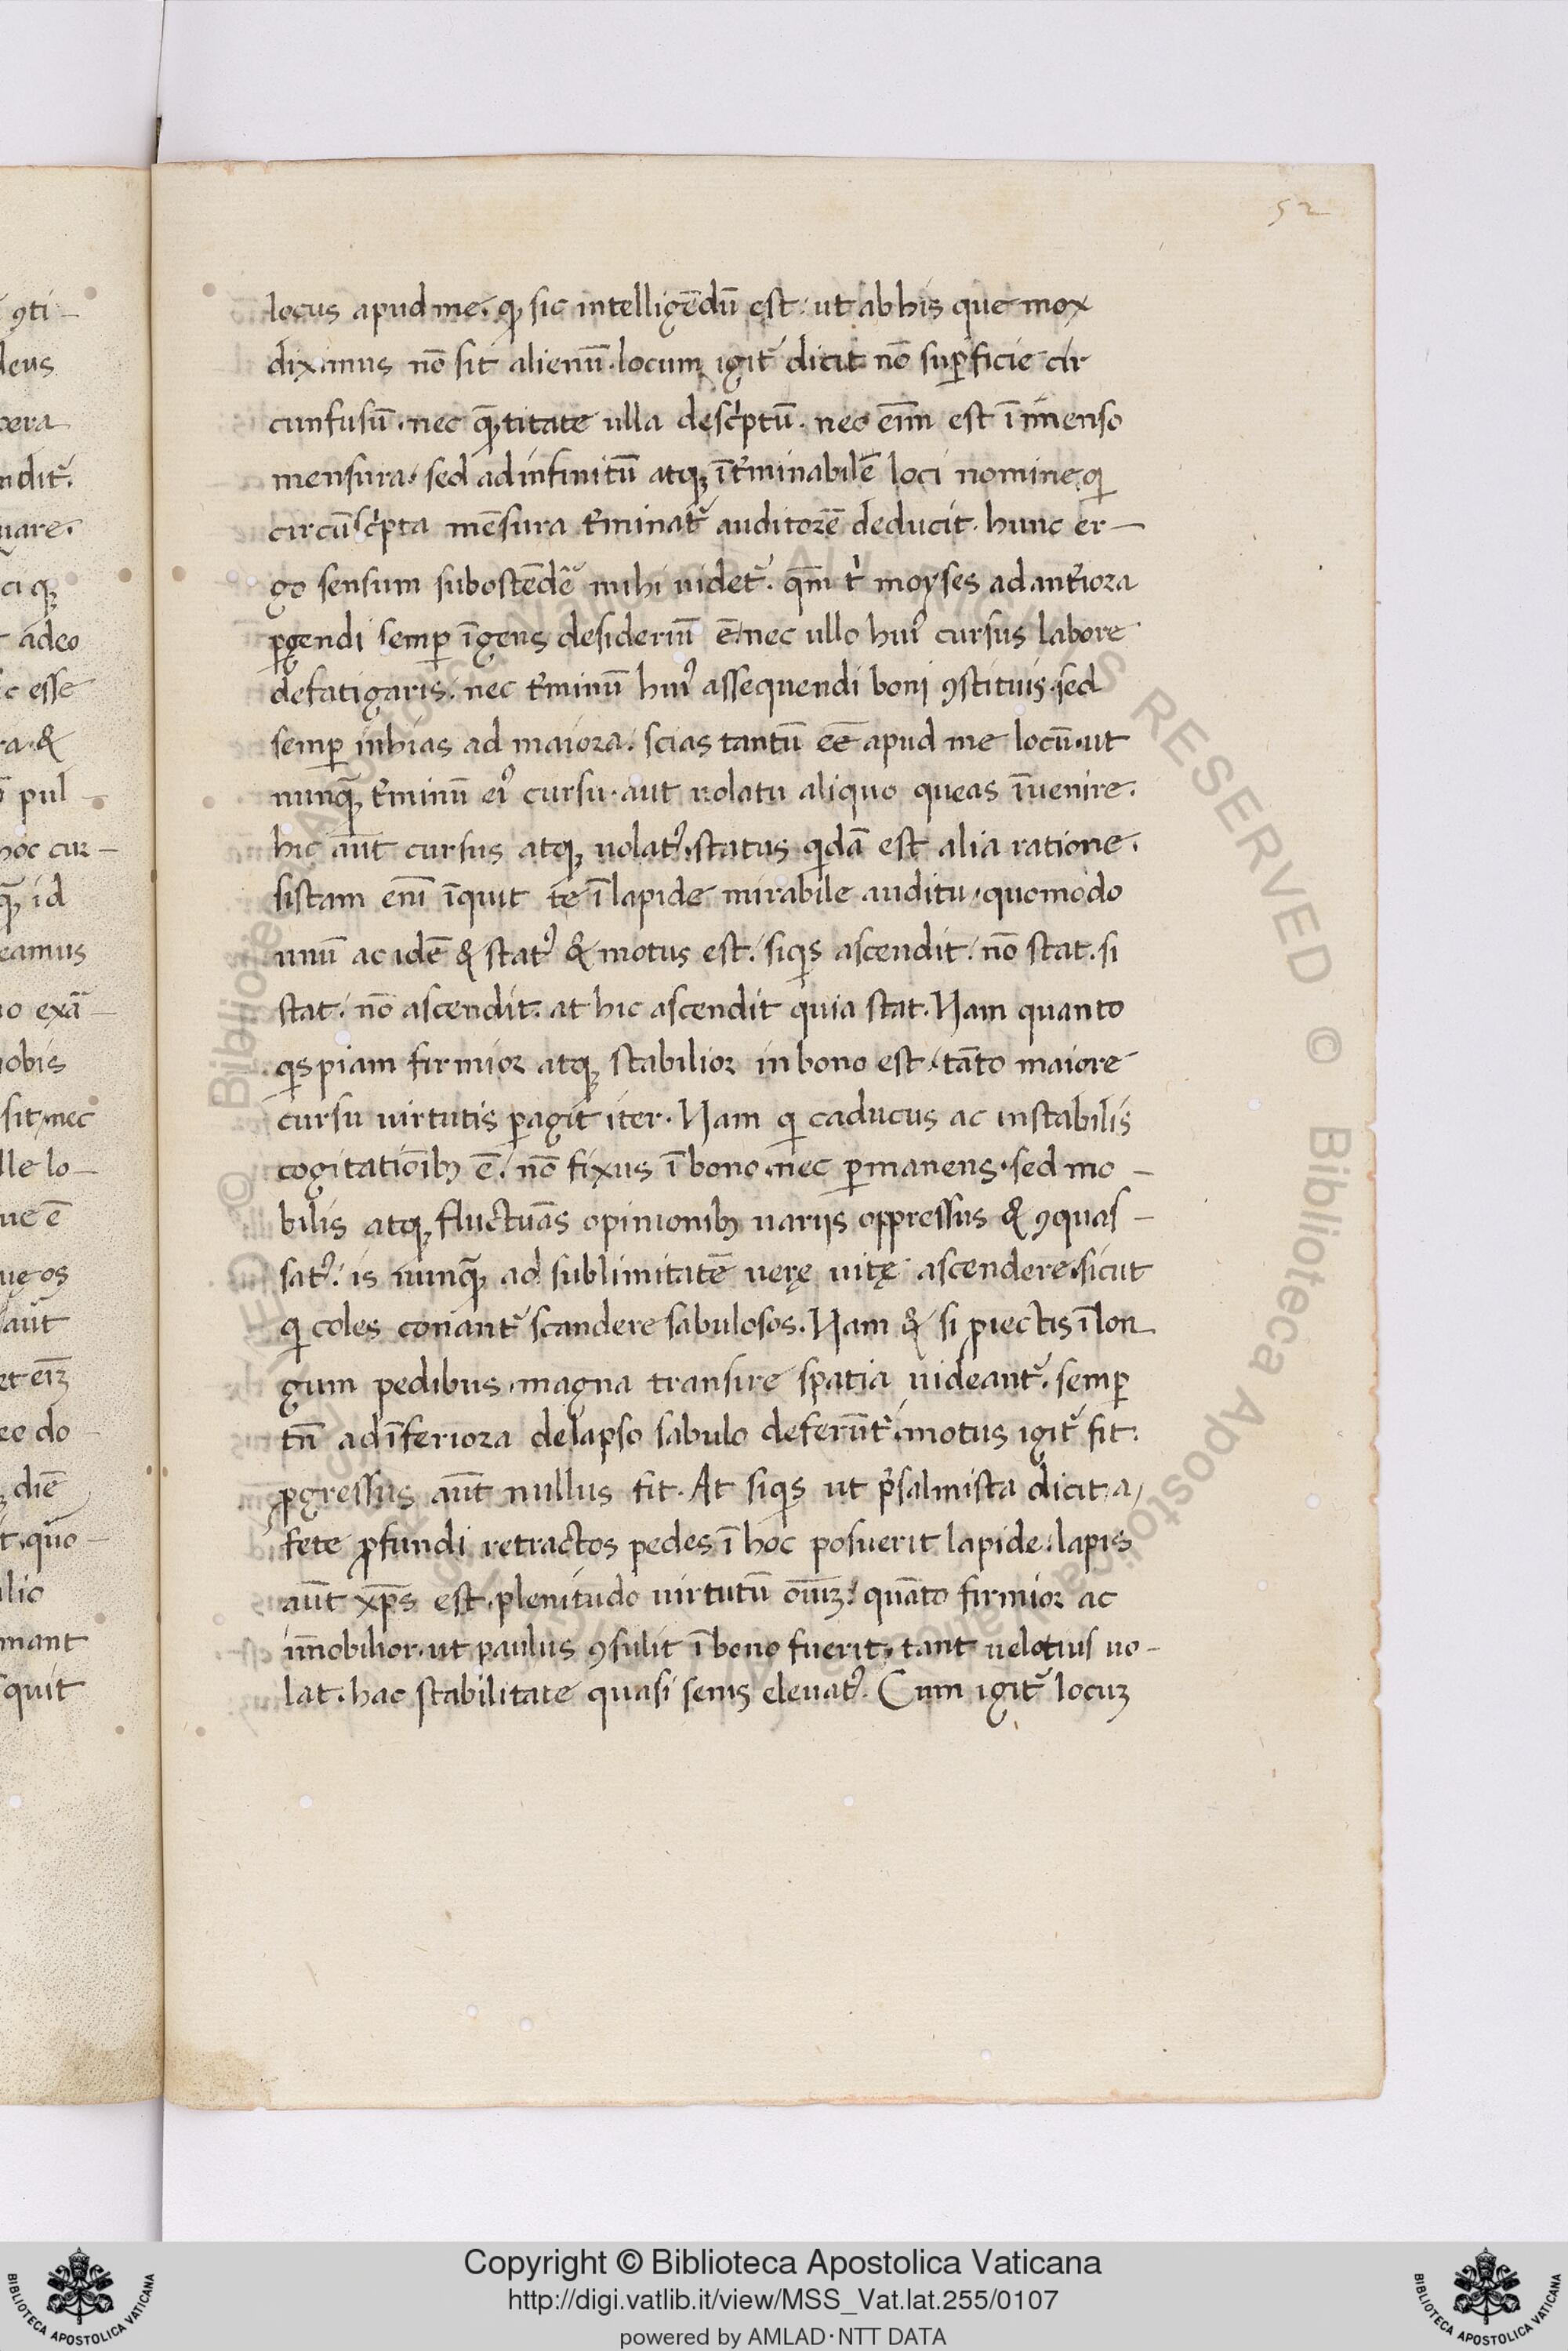 52
locus apud me. qđ sic intelligēdū est: ut ab his que mox
diximus nō sit alienū. locum igit᷑ dicit nō sup̄ficie cir
cunfusū. nec quātitate ulla desc̍ptū. nec eīm est ī īmenso
mensura. sed ad infinitū atq; īt᷑minabilē loci nomine. qi
circūsc̍pta mēsura t᷑minat᷑ auditorē deducit. hunc er-
go sensum subostēde᷑ mihi uidet᷑. qm̄ t̍ moyses ad ant᷑iora
ꝑgendi semꝑ īgens desideriū ē: nec ullo huiꝰ cursus labore
defatigaris. nec t᷑minū huiꝰ assequendi boni ꝯstituis. sed
semꝑ inhias ad maiora. scias tantū eē apud me locū. ut
nunqꝫ t᷑minū eiꝰ cursu. aut uolatu aliquo queas īuenire.
hic aūt cursus atqꝫ uolatꝰ. status qidā est alia ratione.
sistam enī īquit te ī lapide mirabile auditu. quomodo
unū ac idē & statꝰ & motus est. siqis ascendit. nō stat. si
stat. nō ascendit. at hic ascendit quia stat. Nam quanto
qispiam firmior atqꝫ stabilior in bono est. tāto maiore
cursu uirtutis ꝑagit iter. Nam qi caducus ac instabilis
cogitatiōibꝫ ē. nō fixus ī bono. nec ꝑmanens. sed mo-
bilis atqꝫ fluctuās opinionibꝫ uarijs oppressus & ꝯquas-
satꝰ. is nunqꝫ ad sublimitatē uerę uitę ascendere. sicut
qi coles conant᷑ scandere sabulosos. Nam & si ꝓiectis ī lon
gum pedibus. magna transire spatia uideant᷑. semꝑ
tn̄ ad īferiora delapso sabulo deferūt᷑. motus igit᷑ fit.
ꝓgressus aūt nullus fit. At siqis ut p̍salmista dicit. a
fete ꝓfundi retractos pedes ī hoc posuerit lapide. lapis
aūt xp̄s est. plenitudo uirtutū oīuꝫ. quāto firmior ac
īmobilior. ut paulus ꝯsulit ī bono fuerit. tant uelotius uo-
lat. hac stabilitate quasi senis eleuatꝰ. Cum igit᷑ locuꝫ
Copyright © Biblioteca Apostolica Vaticana
http://digi.vatlib.it/view/MSS_Vat.lat.255/0107
powered by AMLAD·NTT DATA